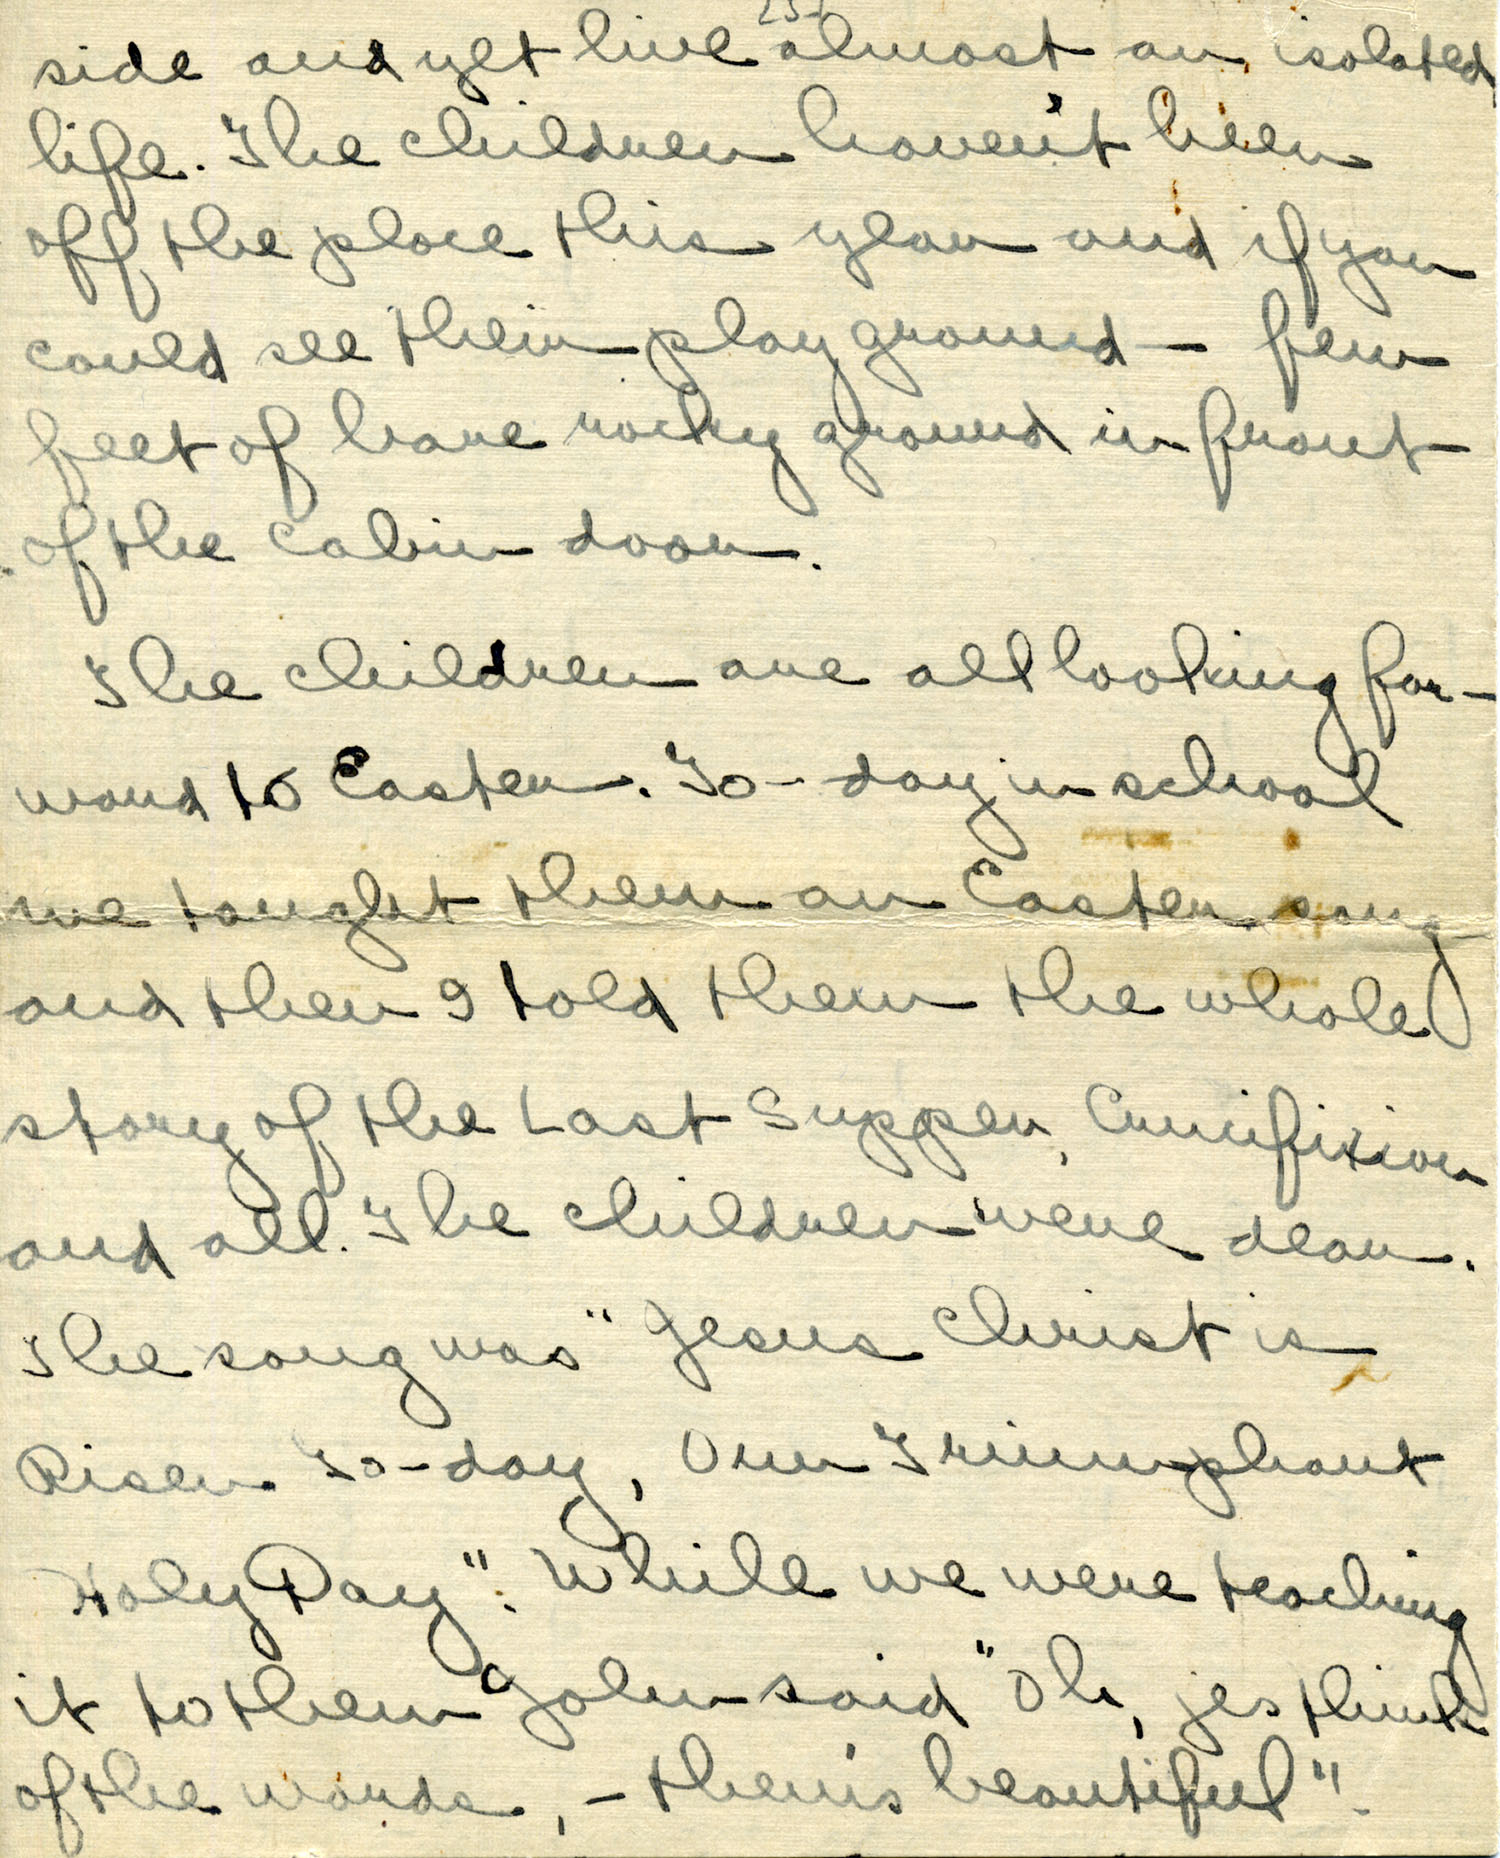 side and yet live almost an isolated
life. The children haven't been
off the place this year and if you
could see their play ground — few
feet of bare rocky ground in front
of the cabin door.
The children are all looking for-
ward to Easter. To-day in school
we taught them an Easter song
and then I told them the whole
story of the Last Supper, Crucifixion
and all. The children were dear.
The song was "Jesus Christ is
Risen To-day, Our Triumphant
Holy Day". While we were teaching
it to them John said "Oh, jes think
of the words, – them's beautiful".